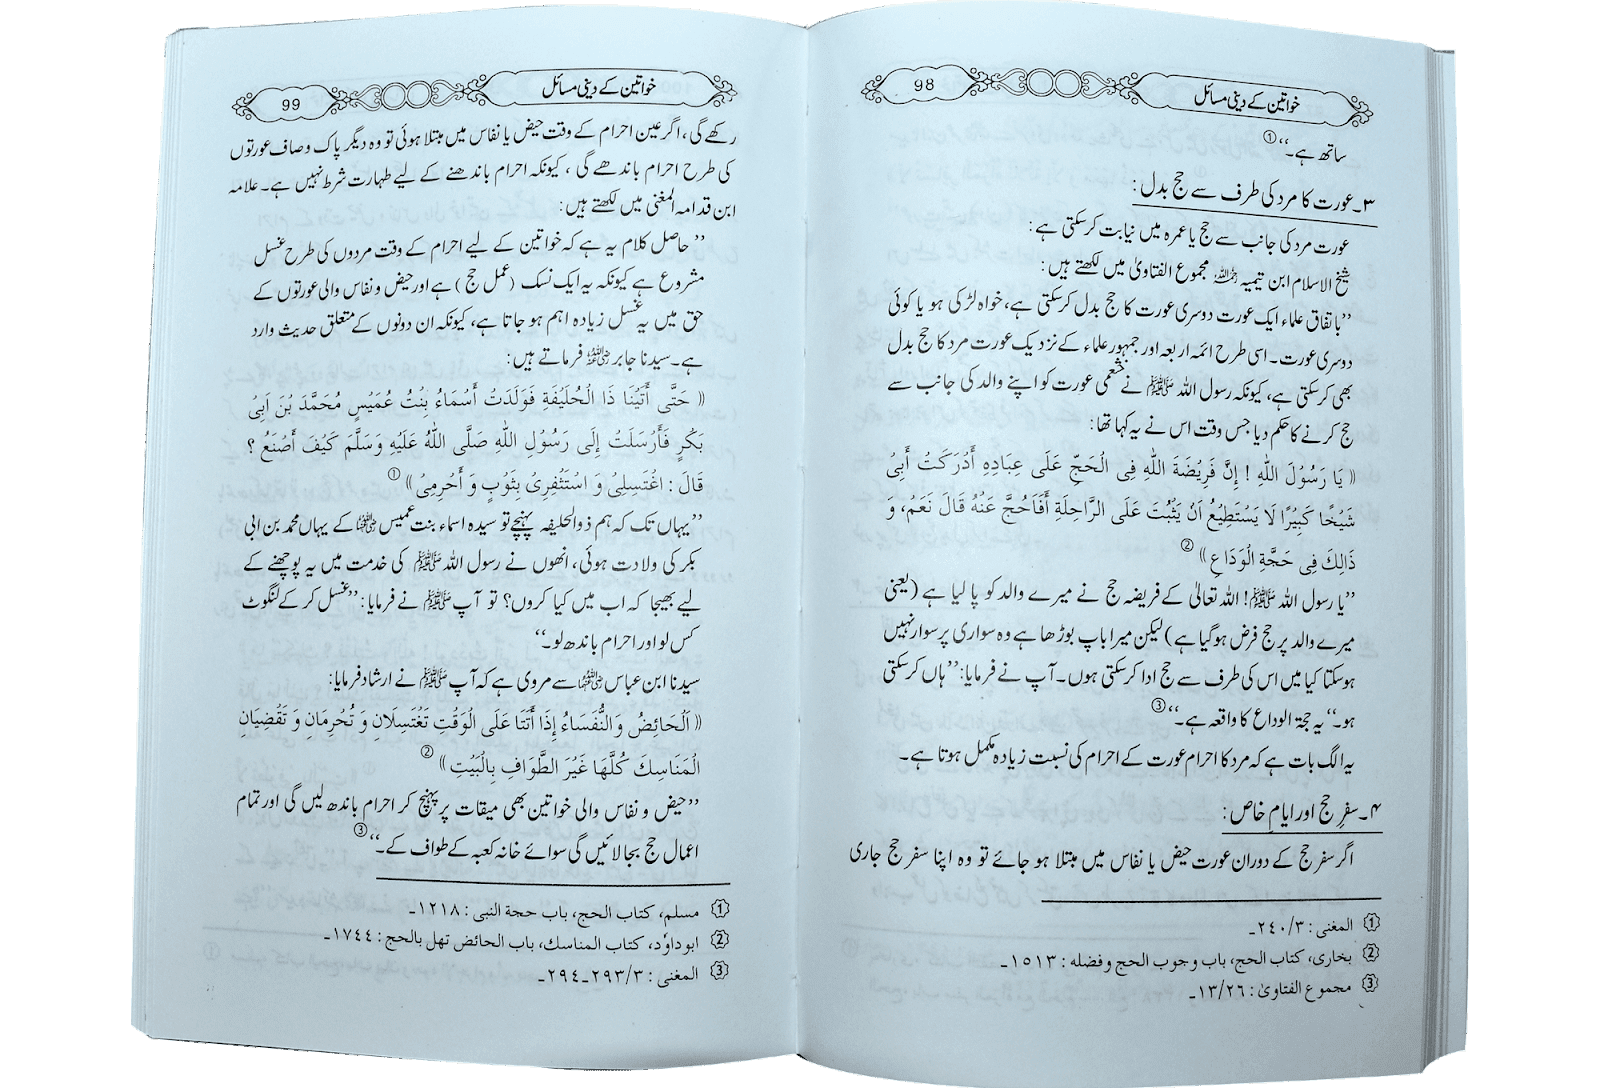 98
خواتین کے دینی مسائل
ساتھ ہے۔‘‘①
۳۔عورت کا مرد کی طرف سے حج بدل:
عورت مرد کی جانب سے حج یا عمرہ میں نیابت کرسکتی ہے:
شیخ الاسلام ابن تیمیہ رحمہ اللہ مجموع الفتاویٰ میں لکھتے ہیں:
’’باتفاق علماء ایک عورت دوسری عورت کا حج بدل کرسکتی ہے، خواہ لڑکی ہو یا کوئی
دوسری عورت۔ اسی طرح ائمہ اربعہ اور جمہور علماء کے نزدیک عورت مرد کا حج بدل
بھی کرسکتی ہے، کیونکہ رسول اللہ ﷺ نے خثعمی عورت کو اپنے والد کی جانب سے
حج کرنے کا حکم دیا جس وقت اس نے یہ کہا تھا:
(( يَا رَسُوْلَ اللهِ ! إِنَّ فَرِيْضَةَ اللهِ فِى الْحَجِّ عَلَى عِبَادِهِ أَدْرَكَتْ أَبِىْ
شَيْخًا كَبِيْرًا لَا يَسْتَطِيْعُ اَنْ يَثْبُتَ عَلَى الرَّاحِلَةِ أَفَاَحُجَّ عَنْهُ قَالَ نَعَمْ، وَ
ذَالِكَ فِى حَجَّةِ الْوَدَاعِ ))②
’’یا رسول اللہ ﷺ! اللہ تعالیٰ کے فریضہ حج نے میرے والد کو پا لیا ہے (یعنی
میرے والد پر حج فرض ہوگیا ہے) لیکن میرا باپ بوڑھا ہے وہ سواری پر سوار نہیں
ہوسکتا کیا میں اس کی طرف سے حج ادا کرسکتی ہوں۔ آپ نے فرمایا: ’’ہاں کرسکتی
ہو۔‘‘ یہ حجۃ الوداع کا واقعہ ہے۔‘‘③
یہ الگ بات ہے کہ مرد کا احرام عورت کے احرام کی نسبت زیادہ مکمل ہوتا ہے۔
۴۔سفرِ حج اور ایامِ خاص:
اگر سفر حج کے دوران عورت حیض یا نفاس میں مبتلا ہو جائے تو وہ اپنا سفر حج جاری
① المغنى : ٣/ ٢٤٠۔
② بخارى، كتاب الحج، باب وجوب الحج وفضله : ١٥١٣۔
③ مجموع الفتاوىٰ : ٢٦/ ١٣۔
99
خواتین کے دینی مسائل
رکھے گی، اگر عین احرام کے وقت حیض یا نفاس میں مبتلا ہوئی تو وہ دیگر پاک و صاف عورتوں
کی طرح احرام باندھے گی، کیونکہ احرام باندھنے کے لیے طہارت شرط نہیں ہے۔ علامہ
ابن قدامہ المغنی میں لکھتے ہیں:
’’حاصل کلام یہ ہے کہ خواتین کے لیے احرام کے وقت مردوں کی طرح غسل
مشروع ہے کیونکہ یہ ایک نسک (عمل حج) ہے اور حیض و نفاس والی عورتوں کے
حق میں یہ غسل زیادہ اہم ہو جاتا ہے، کیونکہ ان دونوں کے متعلق حدیث وارد
ہے۔ سیدنا جابر رضی اللہ عنہ فرماتے ہیں:
(( حَتَّى أَتَيْنَا ذَا الْحُلَيْفَةِ فَوَلَدَتْ أَسْمَاءُ بِنْتُ عُمَيْسٍ مُحَمَّدَ بْنَ اَبِىْ
بَكْرٍ فَأَرْسَلَتْ إِلَى رَسُوْلِ اللهِ صَلَّى اللهُ عَلَيْهِ وَسَلَّمَ كَيْفَ أَصْنَعُ ؟
قَالَ : اغْتَسِلِىْ وَ اسْتَثْفِرِىْ بِثَوْبٍ وَ أَحْرِمِىْ ))①
’’یہاں تک کہ ہم ذوالحلیفہ پہنچے تو سیدہ اسماء بنت عمیس رضی اللہ عنہا کے یہاں محمد بن ابی
بکر کی ولادت ہوئی، انھوں نے رسول اللہ ﷺ کی خدمت میں یہ پوچھنے کے
لیے بھیجا کہ اب میں کیا کروں؟ تو آپ ﷺ نے فرمایا: ’’غسل کر کے لنگوٹ
کس لو اور احرام باندھ لو۔‘‘
سیدنا ابن عباس رضی اللہ عنہما سے مروی ہے کہ آپ ﷺ نے ارشاد فرمایا:
(( اَلْحَائِضُ وَالنُّفَسَاءُ إِذَا أَتَتَا عَلَى الْوَقْتِ تَغْتَسِلَانِ وَ تُحْرِمَانِ وَ تَقْضِيَانِ
الْمَنَاسِكَ كُلَّهَا غَيْرَ الطَّوَافِ بِالْبَيْتِ ))②
’’حیض و نفاس والی خواتین بھی میقات پر پہنچ کر احرام باندھ لیں گی اور تمام
اعمال حج بجا لائیں گی سوائے خانہ کعبہ کے طواف کے۔‘‘③
① مسلم، كتاب الحج، باب حجة النبى : ١٢١٨۔
② ابوداؤد، كتاب المناسك، باب الحائض تهل بالحج : ١٧٤٤۔
③ المغنى : ٣/ ٢٩٣۔٢٩٤۔